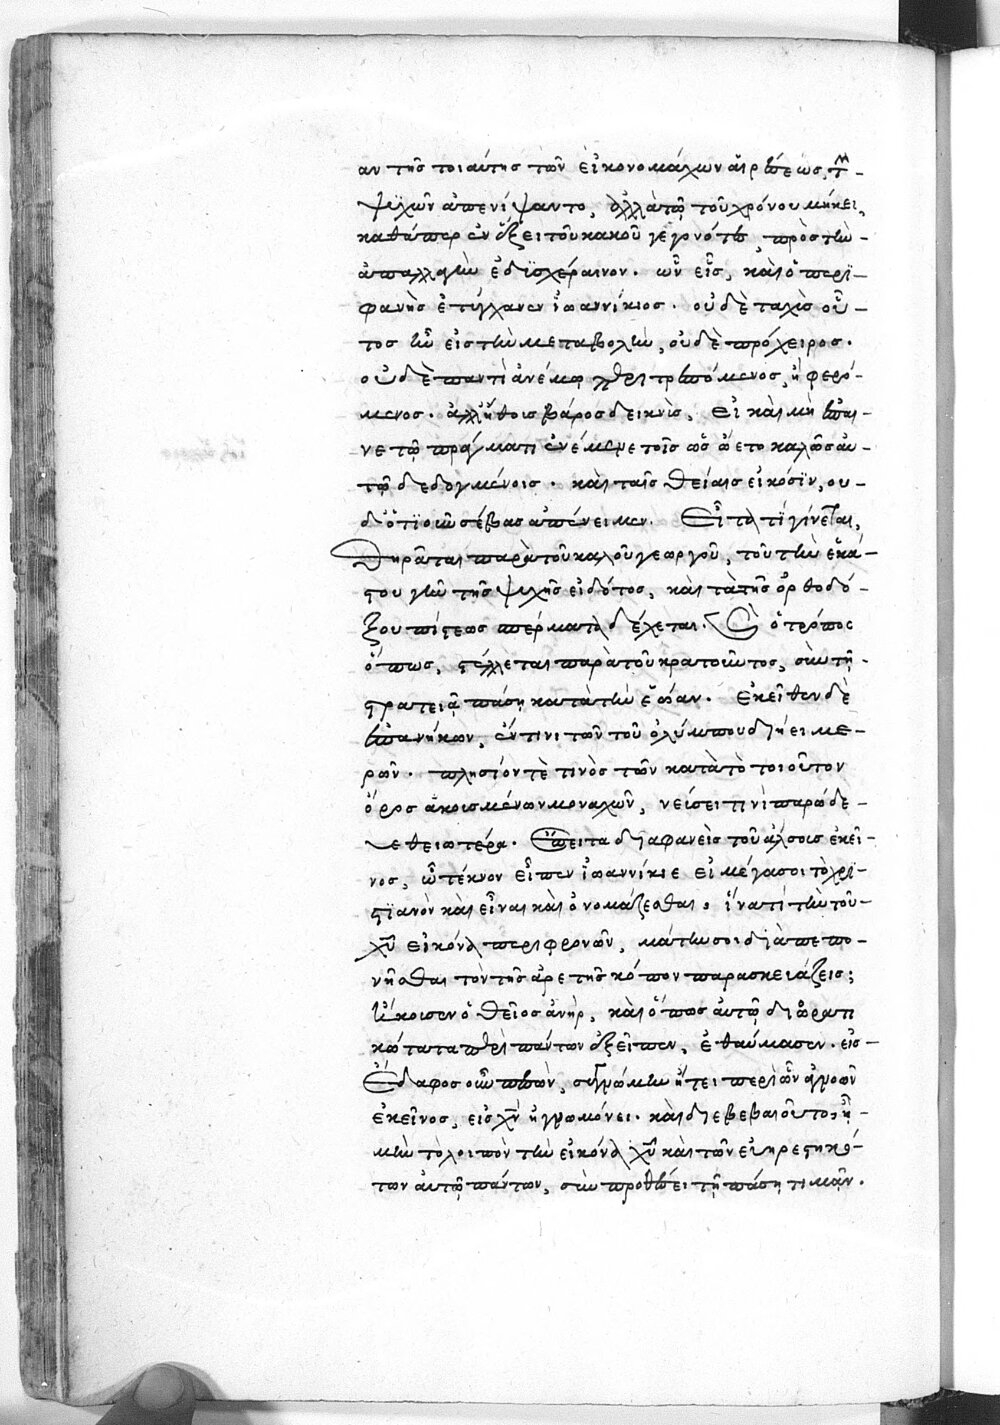 αν τῆς τοιαύτης τῶν εἰκονομάχων αἱρέσεως, τῶν
ψυχῶν ἀπενίψαντο, ἀλλὰ τῷ τοῦ χρόνου μήκει,
καθάπερ ἐν ἕξει τοῦ κακοῦ γεγονότες, πρὸς τὴν
ἀπαλλαγὴν ἐδυσχέραινον. ὧν εἷς, καὶ ὁ περι-
φανὴς ἐτύγχανεν ἰωαννίκιος. οὐδὲ ταχὺς οὗ-
τος ἦν εἰς τὴν μεταβολὴν, οὐδὲ πρόχειρος.
οὐδὲ παντὶ ἀνέμῳ περιτρεπόμενος, ἢ φερό-
μενος. ἀλλ' ἤθους βάρος δεικνὺς, εἰ καὶ μὴ ἐπαι-
νετῷ πράγματι ἐνέμενε τοῖς ὡς ᾤετο καλῶς αὐ-
τῷ δεδογμένοις. καὶ ταῖς θείαις εἰκόσιν, οὐ-
δ' ὁτιοῦν σέβας ἀπένειμεν. Εἶτα τί γίνεται,
Θηρᾶται παρὰ τοῦ καλοῦ γεωργοῦ, τοῦ τὴν ἑκά-
στου γῆν τῆς ψυχῆς εἰδότος, καὶ τὰ τῆς ὀρθοδό-
ξου πίστεως σπέρματα δέχεται. ὁ τρόπος
ὅπως, στέλλεται παρὰ τοῦ κρατοῦντος, σὺν τῇ
στρατειᾷ πάσῃ κατὰ τὴν ἑῴαν. ἐκεῖθεν δὲ
ἐπανήκων, ἔν τινι τῶν τοῦ ὀλύμπου διῄει με-
ρῶν. πλησίον τὲ τινὸς τῶν κατὰ τὸ τοιοῦτον
ὄρος ἀσκουμένων μοναχῶν, νεύσει τινὶ παρώδε-
υε θειοτέρα. Ἔπειτα διαφανεὶς τοῦ ἄλσους ἐκεῖ-
νος, ὦ τέκνον εἶπεν ἰωαννίκιε εἰ μέγα σοι τὸ χρι-
στιανὸν καὶ εἶναι καὶ ὀνομάζεσθαι, ἵνα τί τὴν τοῦ
χ̅υ̅ εἰκόνα περιφρονῶν, μάτην σοι διαπεπο-
νῆσθαι τὸν τῆς ἀρετῆς κόπον παρασκευάζεις;
ἤκουσεν ὁ θεῖος ἀνὴρ, καὶ ὅπως αὐτῷ διορατι-
κώτατα περὶ πάντων ἐξεῖπεν, ἐθαύμασεν. εἰς
Ἔδαφος οὖν πεσὼν, συγγνώμην ᾔτει περὶ ὧν ἀγνοῶν
ἐκεῖνος, εἰς χ̅ν̅ ἠγνωμόνει. καὶ διεβεβαιοῦτο, ἦ
μὴν τὸ λοιπὸν τὴν εἰκόνα χ̅υ̅ καὶ τῶν εὐηρεστηκό-
των αὐτῷ πάντων, σὺν προθέσει τῇ πάσῃ τιμᾷν.